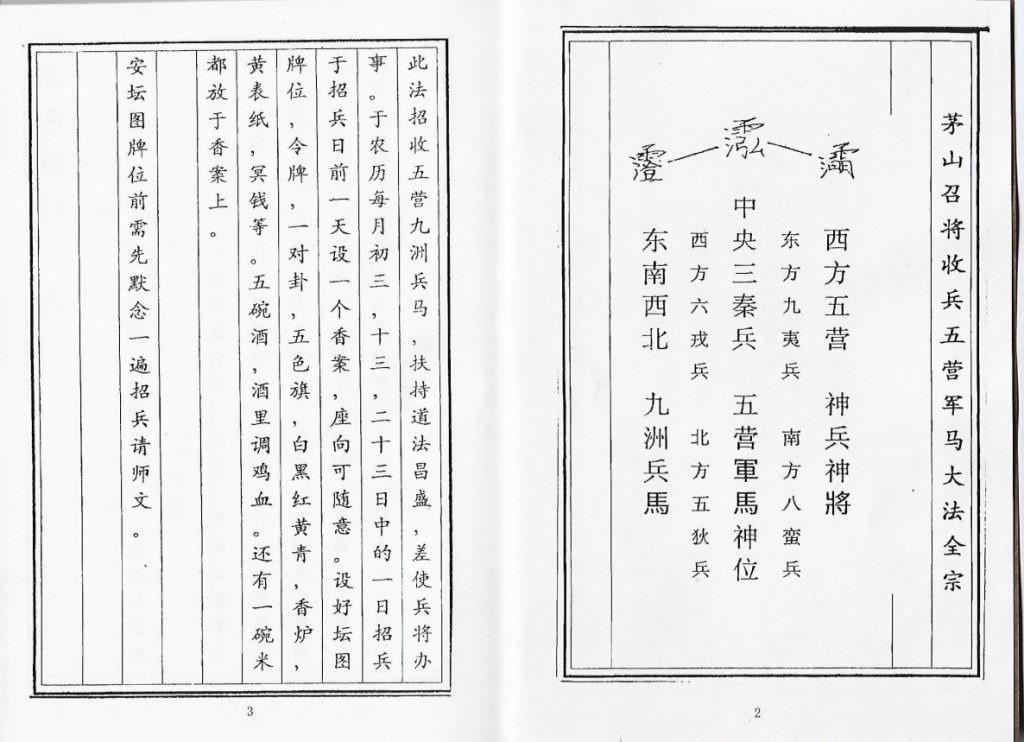 茅山召将收兵五营军马大法全宗
西方五营 神兵神將
东方九夷兵 南方八蛮兵
中央三秦兵 五营軍馬神位
西方六戎兵 北方五狄兵
东南西北 九洲兵馬
2
此法招收五营九洲兵马,扶持道法昌盛,差使兵将办
事。于农历每月初三,十三,二十三日中的一日招兵
于招兵日前一天设一个香案,座向可随意。设好坛图
牌位,令牌,一对卦,五色旗,白黑红黄青,香炉,
黄表纸,冥钱等。五碗酒,酒里调鸡血。还有一碗米
都放于香案上。
安坛图牌位前需先默念一遍招兵请师文。
3